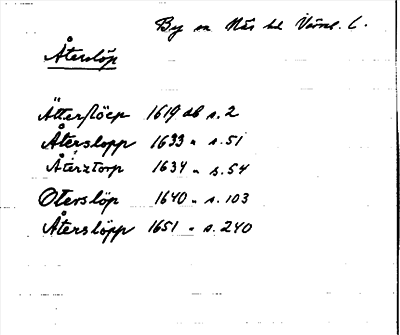 By sn Näs hd Värml. L.
Återslöp
Ätterslöep 1619 db s. 2
Återslopp 1633 " s. 51
Återztorp 1634 " s. 54
Oterslöp 1640 " s. 103
Återslöpp 1651 " s. 240